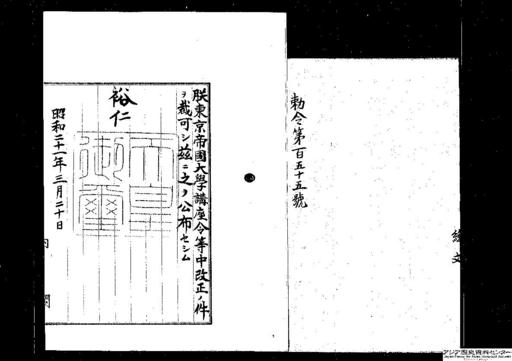 勅令第百五十五號
朕東京帝國大學講座令等中改正ノ件
ヲ裁可シ茲ニ之ヲ公布セシム
裕仁
天皇御璽
昭和二十一年三月二十日
内
閣
アジア歴史資料センター